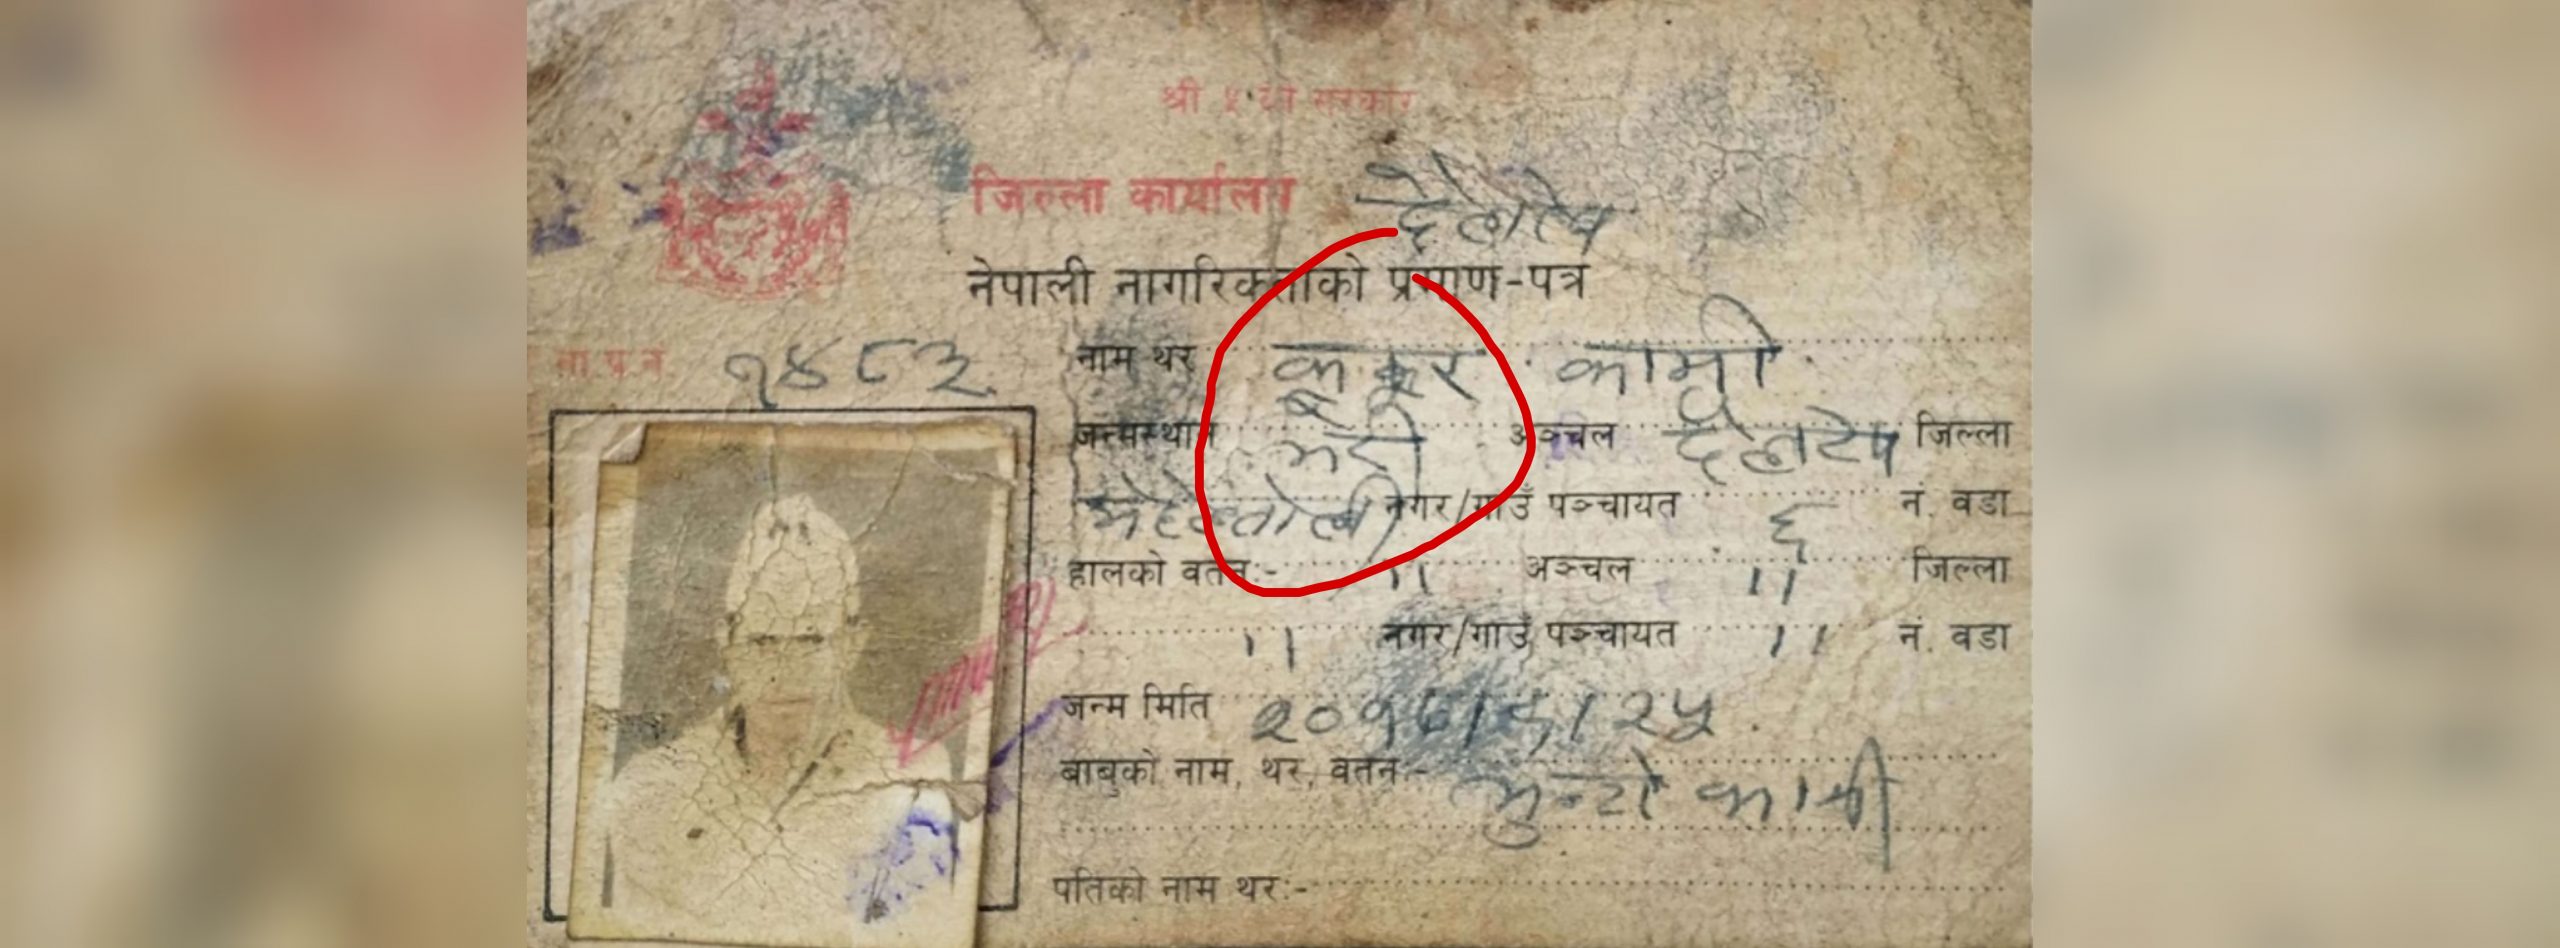 श्री ५ को सरकार
जिल्ला कार्यालय दैलेख
नेपाली नागरिकताको प्रमाण-पत्र
ना.प.नं. १४८३
नाम थर कूकूर कामी
जन्मस्थान भेरी अञ्चल दैलेख जिल्ला
नगर/गाउँ पञ्चायत ६ नं. वडा
हालको वतन:- ,, अञ्चल ,, जिल्ला
,, नगर/गाउँ पञ्चायत ,, नं. वडा
जन्म मिति २५
बाबुको नाम, थर, वतन:- कामी
पतिको नाम थर:-